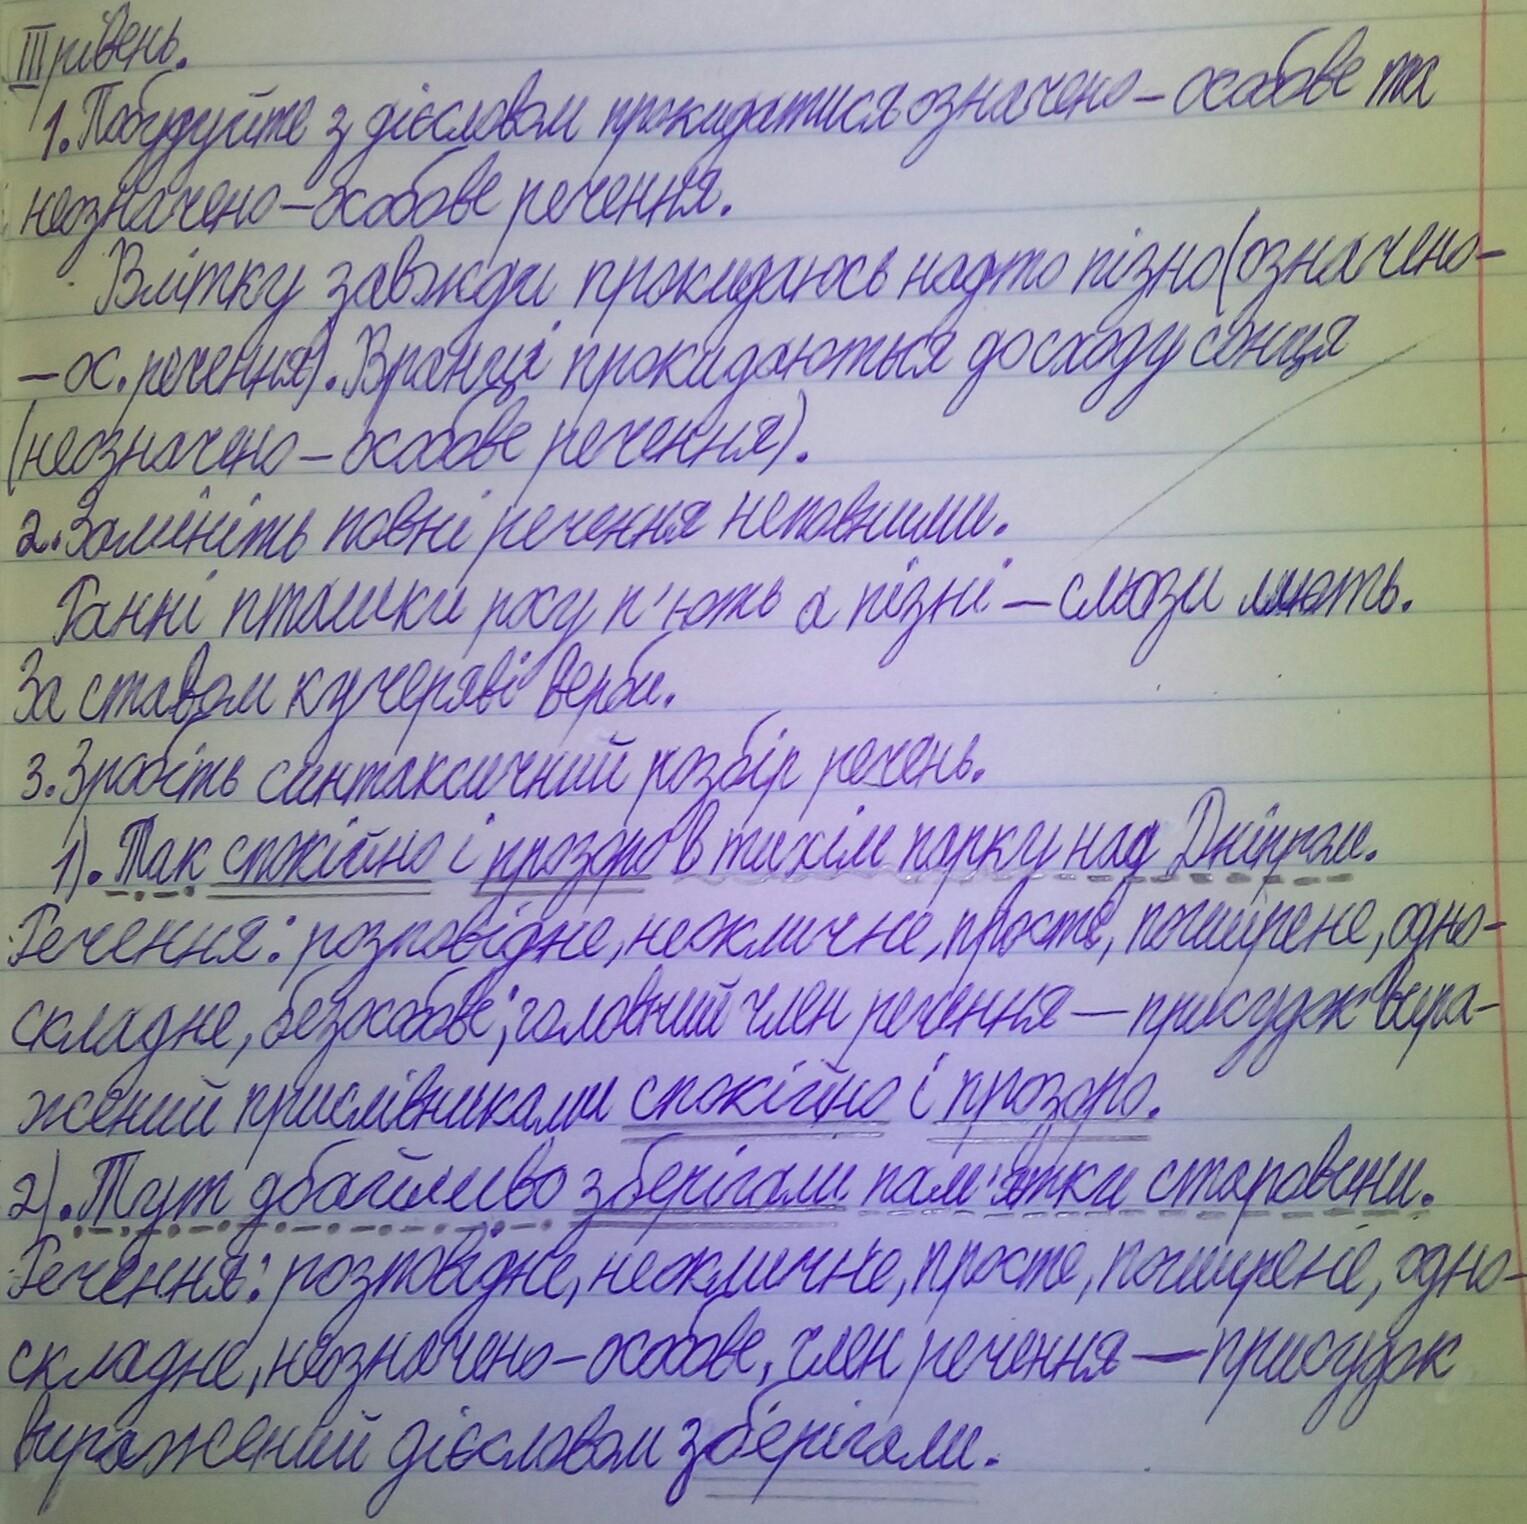 ІІІ рівень.
1. Побудуйте з дієсловом прокидатися означено – особове та
неозначено – особове речення.
Влітку завжди прокидаюсь надто пізно (означено –
– ос. речення). Вранці прокидаються до сходу сонця
(неозначено – особове речення).
2. Замініть повні речення неповними.
Ранні пташки росу п'ють а пізні – сльози ллють.
За ставом кучеряві верби.
3. Зробіть синтаксичний розбір речень.
1). Так спокійно і прозоро в тихім парку над Дніпром.
Речення: розповідне, неокличне, просте, поширене, одно-
складне, безособове; головний член речення – присудок вира-
жений прислівниками спокійно і прозоро.
2). Тут дбайливо зберігали пам'ятки старовини.
Речення: розповідне, неокличне, просте, поширене, одно-
складне, неозначено – особове, член речення – присудок
виражений дієсловом зберігали.